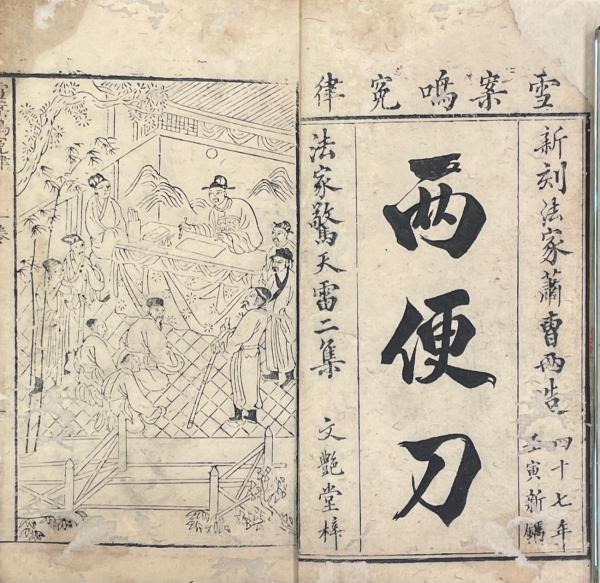 雪案鳴冤律
新刻法家蕭曹兩造
四十七年
壬寅新鐫
兩便刀
法家驚天雷二集
文艷堂梓
雪案鳴冤律
一卷